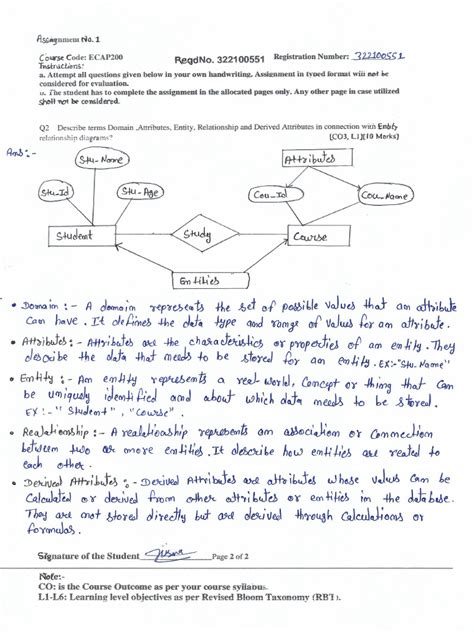 Assignment No. 1
Course Code: ECAP200 ReqdNo. 322100551 Registration Number: 322100551
Instructions:
a. Attempt all questions given below in your own handwriting. Assignment in typed format will not be
considered for evaluation.
b. The student has to complete the assignment in the allocated pages only. Any other page in case utilized
shall not be considered.
Q2 Describe terms Domain ,Attributes, Entity, Relationship and Derived Attributes in connection with Entity
relationship diagrams? [CO3, L1][10 Marks)
Ans:-
Stu-Name
Attributes
Stu-Id
Stu-Age
Cou-Id
Cou-Name
Student
Study
Course
Entities
• Domain :- A domain represents the set of possible values that an attribute
can have. It defines the data type and range of values for an attribute.
• Attributes:- Attributes are the characteristics or properties of an entity. They
describe the data that needs to be stored for an entity. EX:-"Stu.Name"
• Entity :- An entity represents a real-world, Concept or thing that can
be uniquely identified and about which data needs to be stored.
EX :- "Student", "Course".
• Realationship :- A realationship represents an association or connection
between two or more entities. It describe how entities are related to
each other.
• Derived Attributes :- Derived Attributes are attributes whose values can be
Calculated or derived from other attributes or entities in the database.
They are not stored directly but are derived through Calculations or
formulas.
Signature of the Student Page 2 of 2
Note:-
CO: is the Course Outcome as per your course syllabus.
L1-L6: Learning level objectives as per Revised Bloom Taxonomy (RBT).